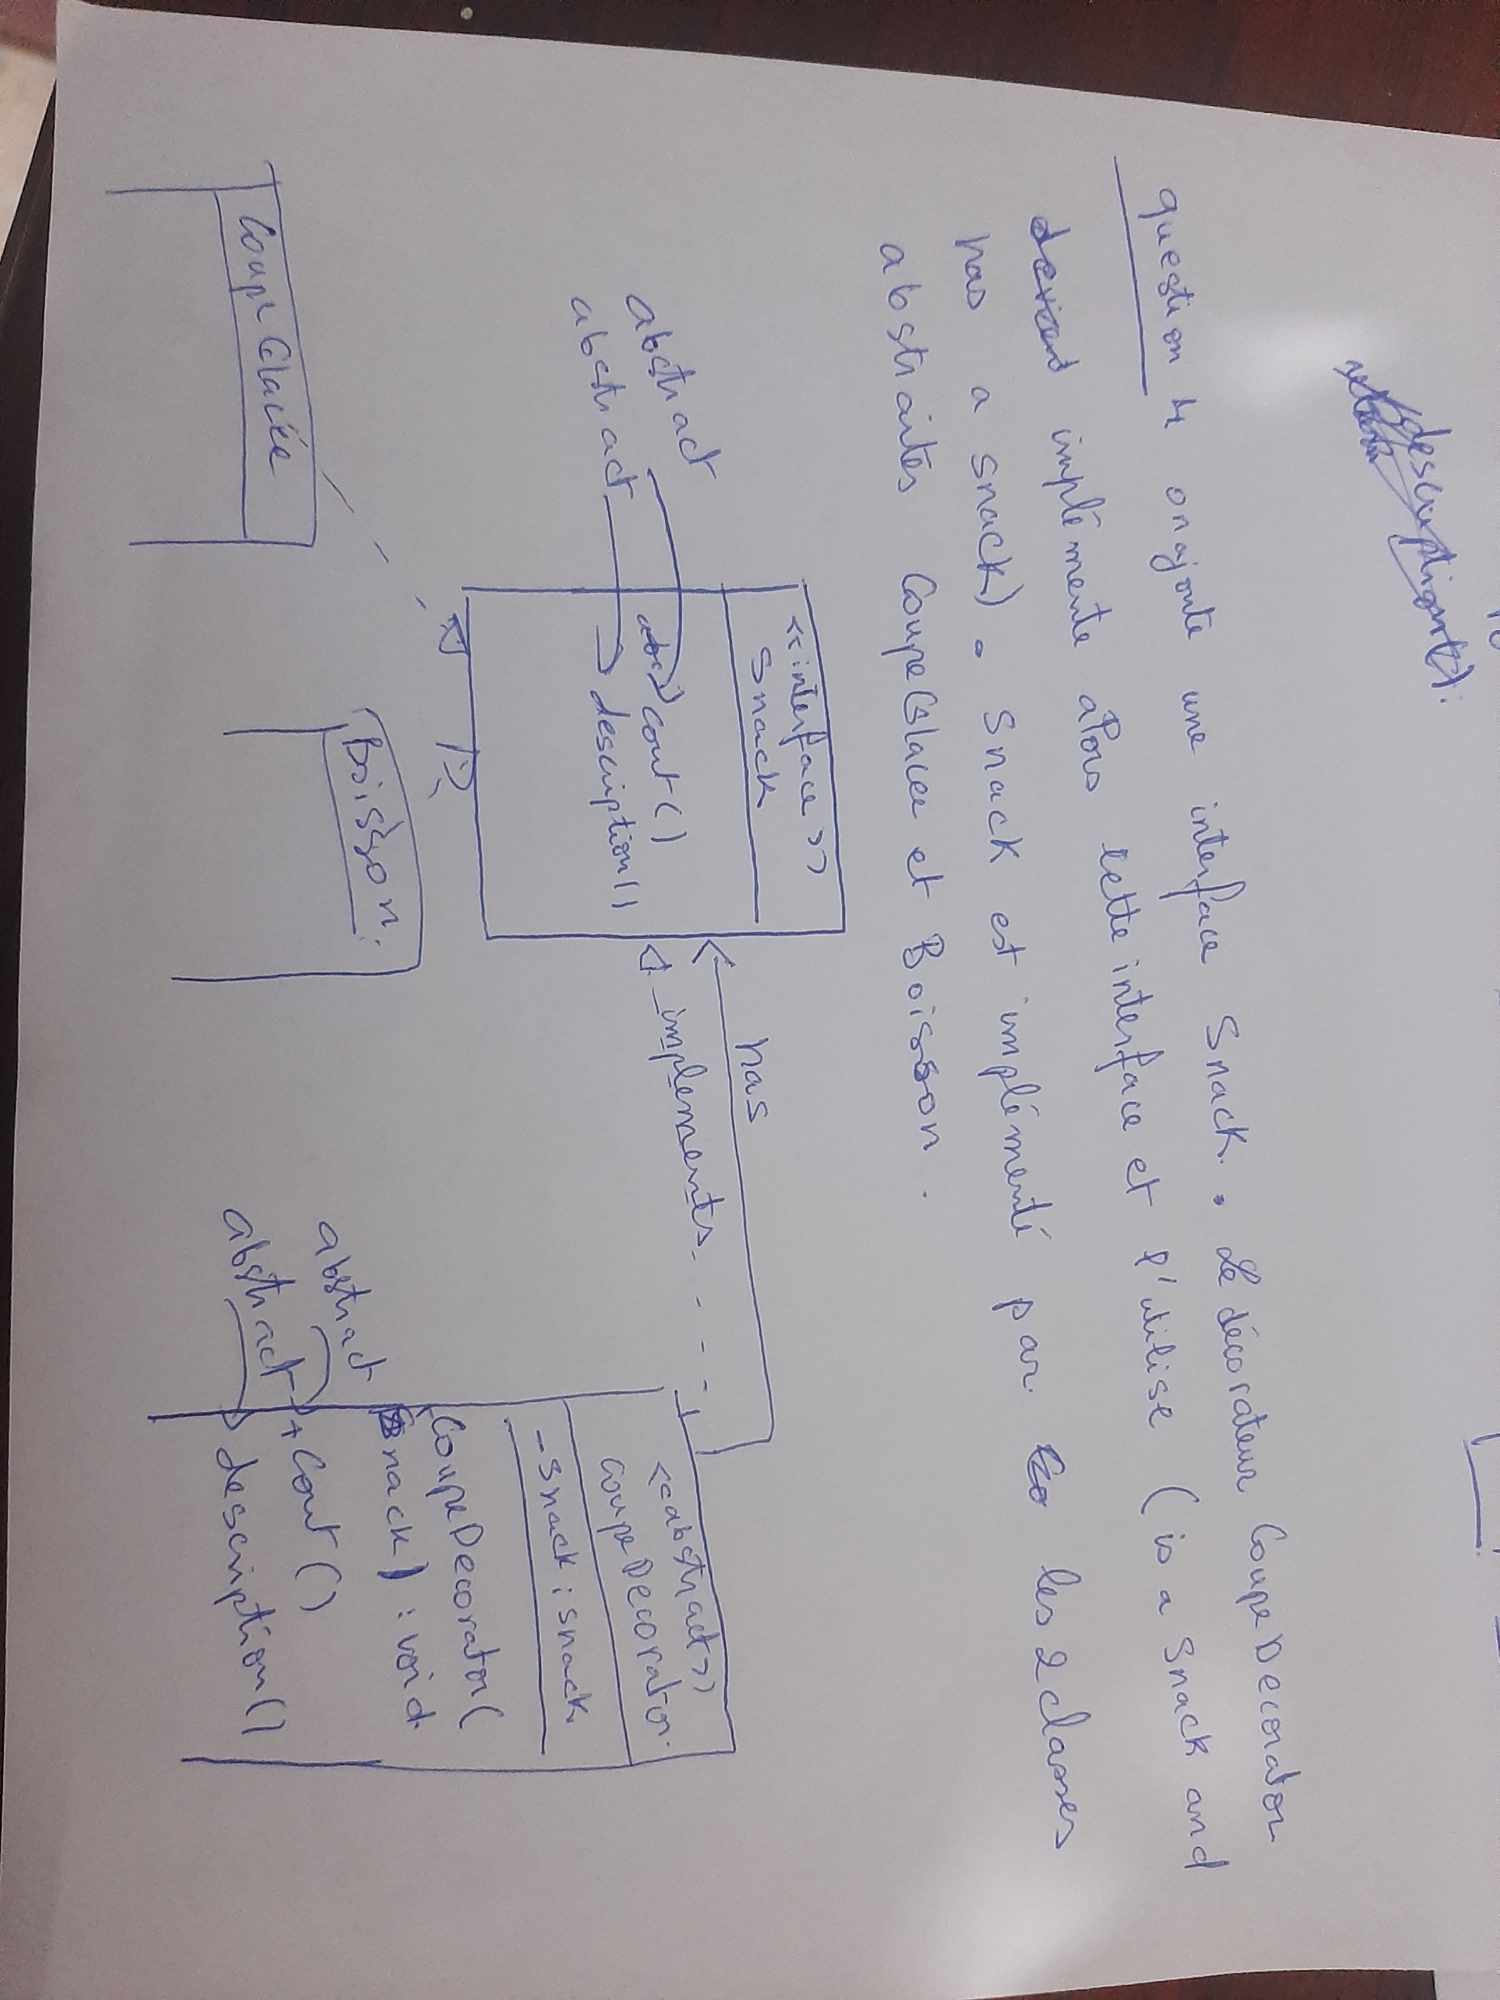 description().
question 4 on ajoute une interface Snack. Le décorateur CoupeDecorator
implémente alors cette interface et l'utilise (is a Snack and
has a snack). Snack est implémenté par les 2 classes
abstraites CoupeGlacee et Boisson.
<<interface>>
Snack
abstract
abstract
cout()
description()
has
implements
<<abstract>>
CoupeDecorator
- Snack : snack
CoupeDecorator(
Snack) : void
abstract
abstract
+ Cout()
description()
Boisson
Coupe Glacée